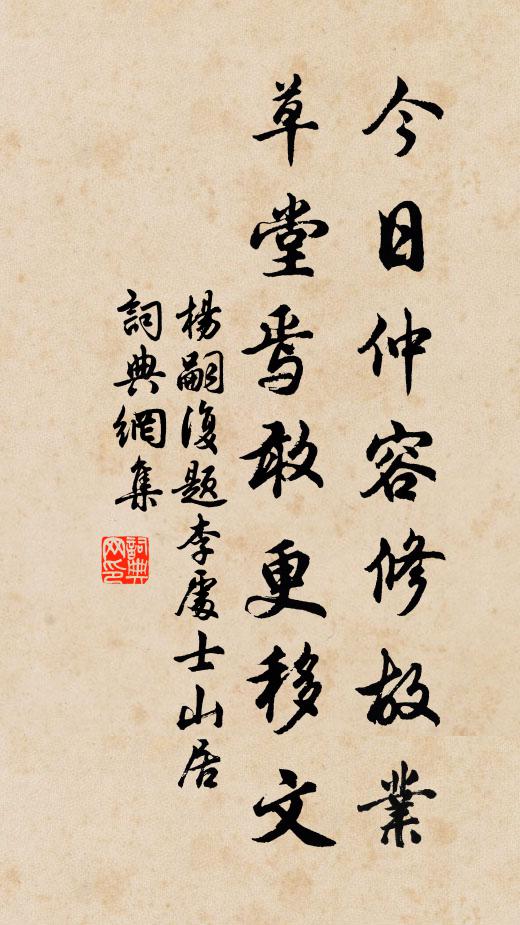 今日仲容修故業
草堂焉敢更移文
楊嗣復題李處士山居
詞典網集
詞典网印